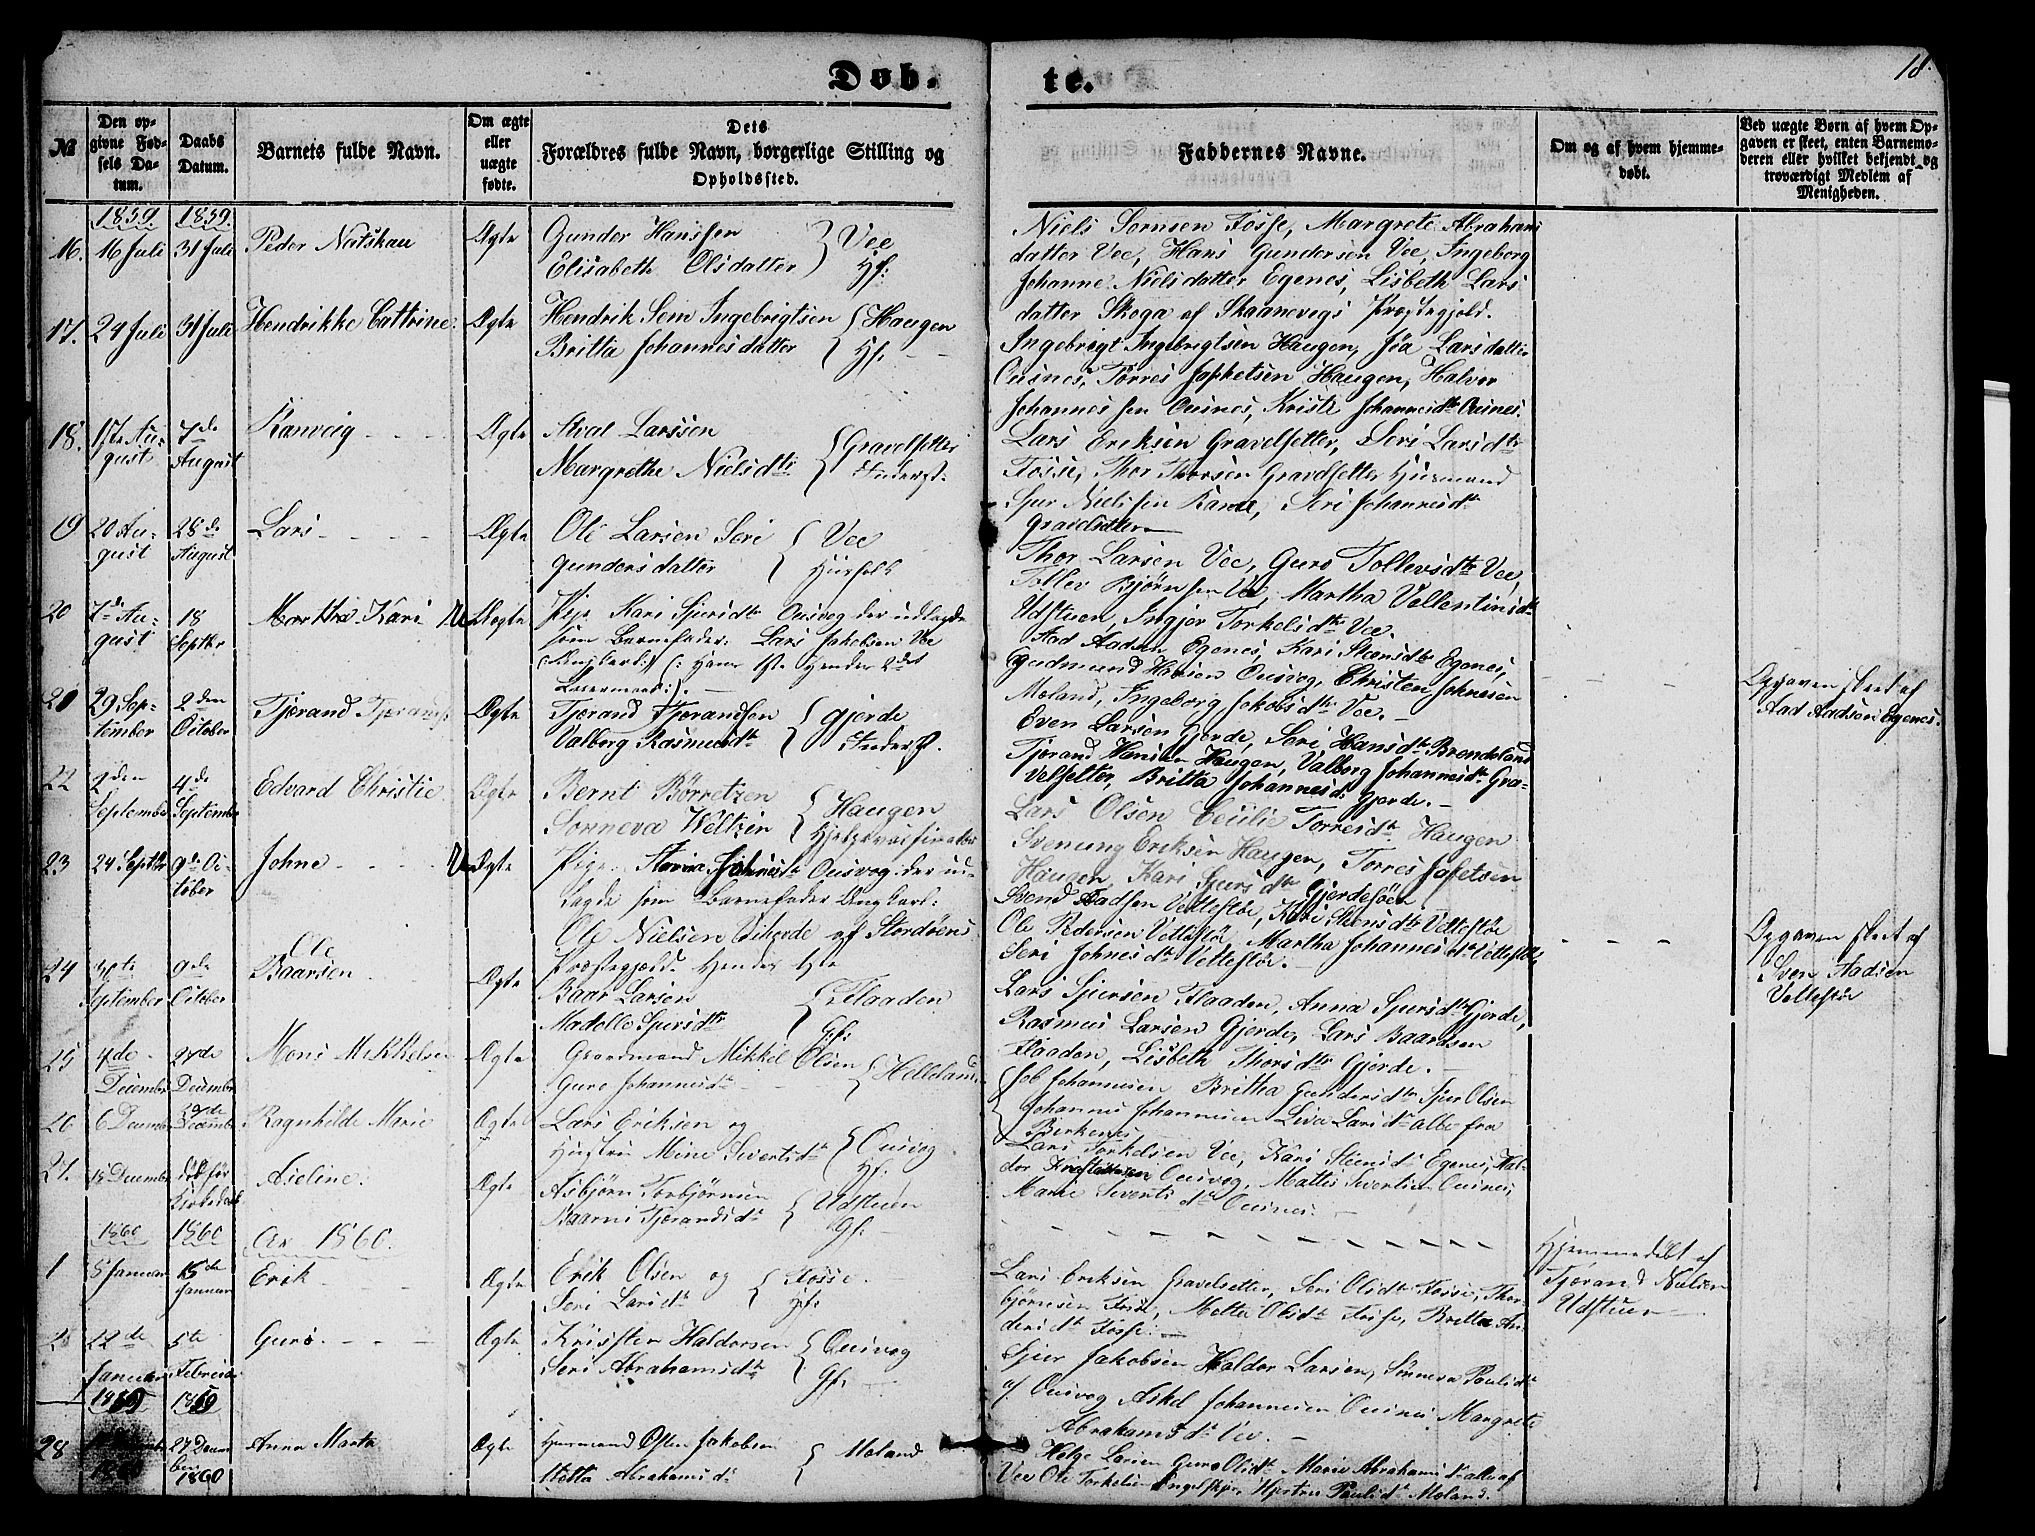 Døb-
te.
18.
№
Den op-
givne Fød-
sels Da-
tum.
Daabs
Datum.
Barnets fulde Navn.
Om ægte
eller
uægte
fødte.
Dets
Forældres fulde Navn, borgerlige Stilling og
Opholdssted.
Faddernes Navne.
Om og af hvem hjemme-
døbt.
Ved uægte Børn af hvem Op-
gaven er skeet, enten Barnemo-
deren eller hvilket bekjendt og
troværdigt Medlem af
Menigheden.
1859.
1859.
16.
16 Juli
31 Juli
Peder Natskau
Ægte
Gunder Hanssen
Elisabeth Olsdatter
Vee
Hf:
Niels Fosse, Margrete Abrahams
datter Vee, Hans Gundersen Vee, Ingeborg
Johanne Nielsdatter Egenes, Lisbeth Lars
datter Skoga af Skaanevogs Præstegjeld.
17.
24 Juli
31 Juli
Hendrikke Cattrine.
Ægte
Hendrik Sem Ingebrigtsen
Britta Johannesdatter
Haugen
Hf:
Ingebrigt Ingebrigtsen Haugen, Larsdatter
Ousnes, Torres Japhetsen Haugen, Halvor
Johannessen Ousnes, Kristi Johannesdtr Ousnes.
18.
17 Au-
gust
7de
August
Ranveig
Ægte
Larssen
Margrethe Nielsdtr
Gravelsetter
Lars Eriksen Gravelsetter, Seri Larsdtr
Fosse, Thor Thorsen Gravelsetter Husmand
Sjur Nielssen, Seri Johannesdtr
Gravelsetter
19
20 Au-
gust
28de
August
Lars
Ægte
Ole Larsen Seri
Gundersdatter
Vee
Husfolk
Thor Larsen Vee, Guro Tollevsdtr Vee,
Tollev Bjørnsen Vee, Martha Vallentinsdtr
Udstuen, Ingjer Torkelsdtr Vee.
20
7de Au-
gust
18
Septbr
Martha Kari
Uægte
Pige Kari Sjursdtr Ousvog der udlagde
som Barnefader: Lars Jakobsen Vee
(: Hans 1ste Hendes 2det
Leiermaal:).
Aad Aadsen Egenes, Kari Egenes,
Gudmund Hansen Ousvog, Christen Johnesen
Moland, Ingeborg Jakobsdtr Vee.
Opgaven skeet af
Aad Aadsen Egenes.
21
29 Sep-
tember
2den
October
Tjærand Tjærands:
Ægte
Tjærand Tjærandsen
Valborg Rasmusdtr
Gjerde
Even Larsen Gjerde, Seri Hansdtr Brendeland
Tjerand Hansen Haugen, Valborg Johannesdtr Gra-
velsetter, Britta Johannesdtr Gjerde.
22
2den
September
4de
September
Edvard Christie
Ægte
Bernt Børretzen
Sonneva Weltzin
Haugen
Lars Olsen Cecilie Torresdtr Haugen
Svenung Eriksen Haugen, Torres Jafetsen
Haugen, Kari Sjursdtr Gjerdesøen
23
24 Septbr
9de Oc-
tober
Johne
Uægte
Pige Johnesdtr Ousvog der ud-
lagde som Barnefader Ungkarl:
Ole Nielsen af Stordøens
Præstegjæld. Hendes 1ste
Svend Aadsen Vettestøe, Kari Vettestøe
Ole Pedersen Vettestøe, Martha Johannesdtr Vettestøe,
Seri Johnesdtr Vettestøe.
Opgaven skeet af
Sven Aadsen
Vettestøe
24
September
9de
October
Ole
Baarsen
Ægte
Baar Larsen
Madelle Sjursdtr
Flaaden
Gf:
Lars Sjursen Flaaden, Anna Sjursdtr Gjerde,
Rasmus Larsen Gjerde, Lars Baardsen
Flaaden, Lisbeth Thorsdtr Gjerde.
25
4de
December
27de
December
Mons Mikkelsen
Ægte
Gaardmand Mikkel Olsen
Guro Johannesdtr
Helleland
Job Johannesen Britha Gundersdtr Sjur Olsen
Johannes Johannesen Liva Larsdtr alle fra
Birkenes
26
6 December
December
Ragnhilde Marie
Ægte
Lars Eriksen og
Hustru Mine Sivertsdtr
Ousvog
Hf:
Lars Torkelsen Vee, Kari Egenes, Hal-
dor Ousvog, Mattis Sivertsen Ousnes,
Marie Sivertsdtr Ousnes.
27.
December
død før
Aseline.
Ægte
Asbjørn Torbjørnsen
Tjærandsdtr
Udstuen
Gf:
Hjemmedøbt af
Tjærand Nielsen
Udstuen
1860
1860
Aar 1860.
1
5 Januar
15de
Januar
Erik
Ægte
Erik Olsen og
Seri Larsdtr
Fosse
Hf:
Lars Eriksen Gravelsetter, Seri Olsdtr Fosse, Thor-
bjørnsen, Metta Olsdtr, Britta An-
dersdtr Fosse.
2
22de
Januar
5te
Februar
Guro
Ægte
Krisster Haldorsen
Seri Abrahamsdtr
Ousvog
Gf:
Sjur Jakobsen Haldor Larsen, Sønneva Paulsdtr
af Ousvog Askel Johannesen Ousnes Margrete
Abrahamsdtr Vee.
1859
1859
28
27 Decem
ber
1860
Anna Marta
Ægte
Husmand Osten Jakobsen
Metta Abrahamsdtr
Moland
Helge Larsen Guro Olsdtr Marie Abrahamsdtr alle af
Vee Ole Torkelsen Paulsdtr Moland.